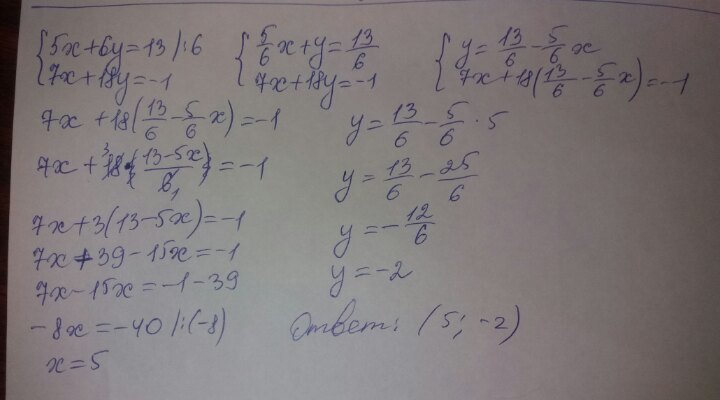 {5x+6y=13 |:6 {5/6x+y=13/6 {y=13/6-5/6x
{7x+18y=-1 {7x+18y=-1 {7x+18(13/6-5/6x)=-1
7x+18(13/6-5/6x)=-1
7x+18·(13-5x)/6=-1
7x+3(13-5x)=-1
7x+39-15x=-1
7x-15x=-1-39
-8x=-40 |:(-8)
x=5
y=13/6-5/6·5
y=13/6-25/6
y=-12/6
y=-2
Ответ: (5; -2)